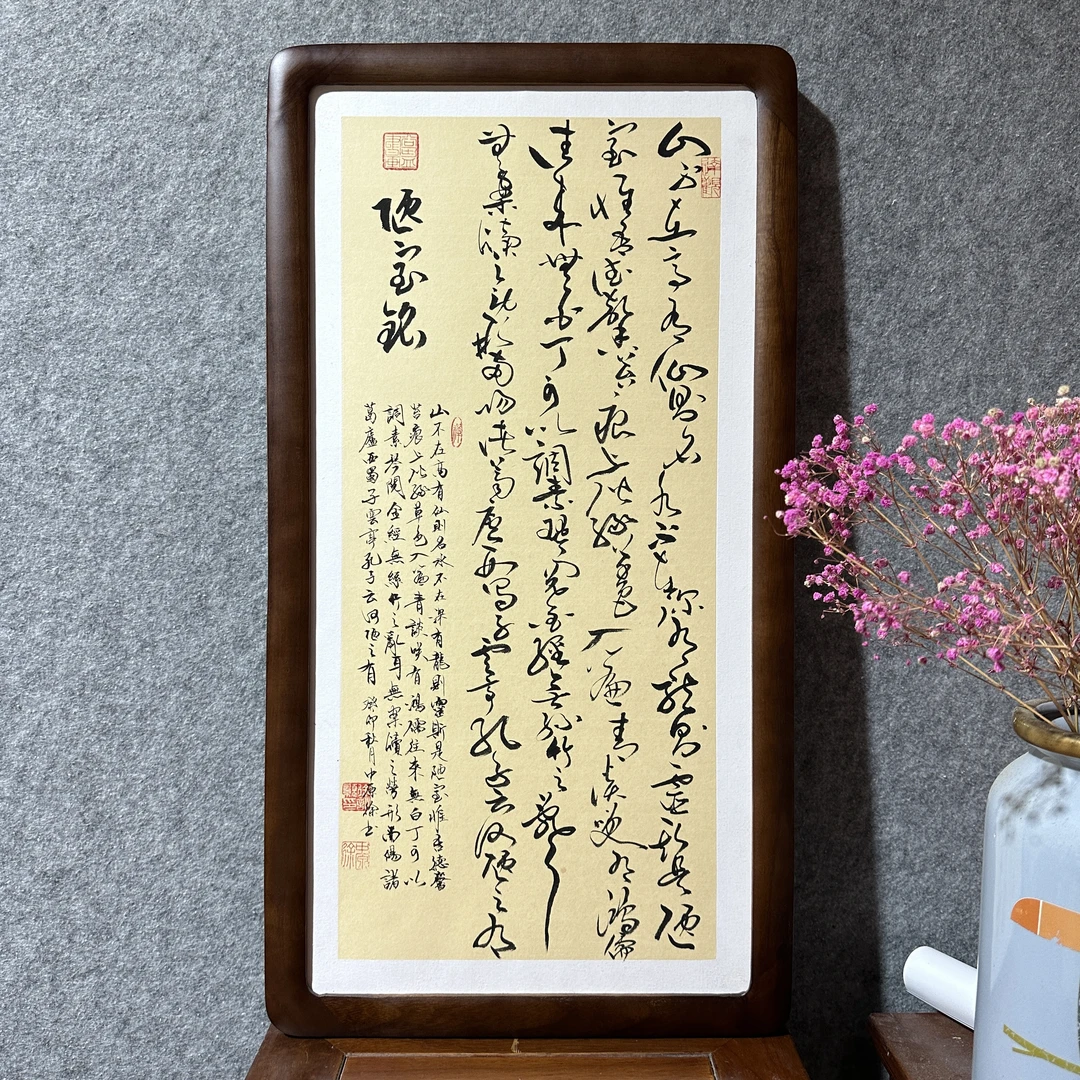 山不在高有仙則名水不在深有龍則靈斯是陋
室惟吾德馨苔痕上階綠草色入簾青談笑有鴻儒
往來無白丁可以調素琴閱金經無絲竹之亂耳
無案牘之勞形南陽諸葛廬西蜀子雲亭孔子云何陋之有
陋室銘
山不在高有仙則名水不在深有龍則靈斯是陋室惟吾德馨
苔痕上階綠草色入簾青談笑有鴻儒往來無白丁可以
調素琴閱金經無絲竹之亂耳無案牘之勞形南陽諸
葛廬西蜀子雲亭孔子云何陋之有 癸卯秋月中原徐书